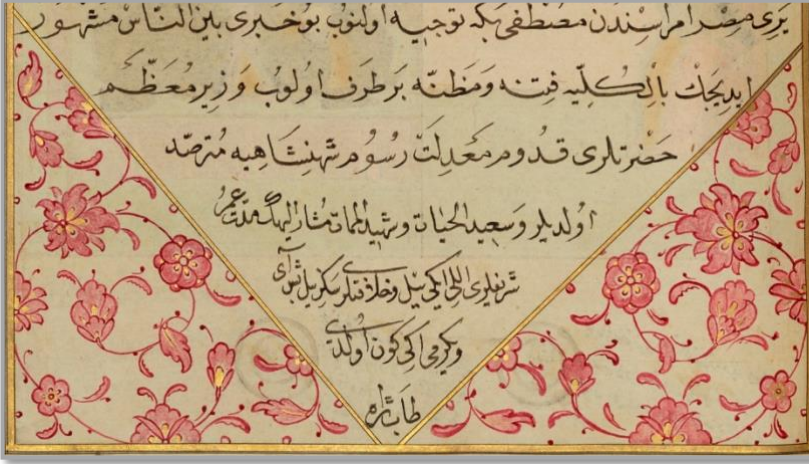 یری مصر امراسندن مصطفی بكه توجیه اولنوب بو خبری بین الناس مشهور
ایدیجك بالكلیه فتنه و مظنه بر طرف اولوب وزیر معظم
حضرتلری قدوم معدلت رسوم شهنشاهیه مترصد
اولدیلر و سعید الحیات و شهید الممات مشار الیهك مدت عمر
شریفلری اللی ایكی ییل و خلافتلری سكز ییل بش آی
و یكرمی ایكی كون اولدی
طاب ثراه